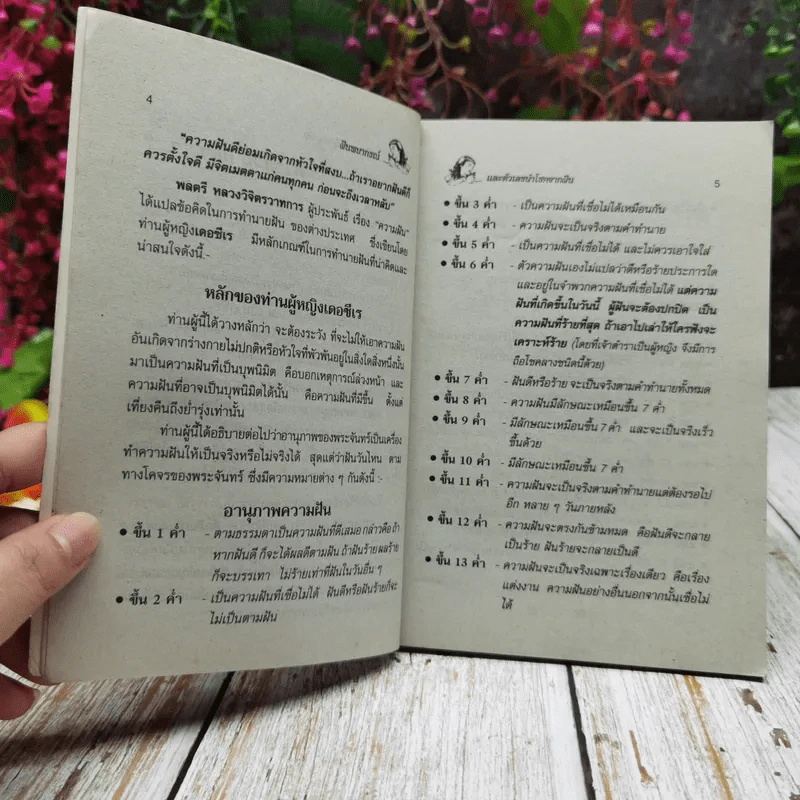 4
ฝันพยากรณ์
"ความฝันดีย่อมเกิดจากหัวใจที่สงบ...ถ้าเราอยากฝันดีก็
ควรตั้งใจดี มีจิตเมตตาแก่คนทุกคน ก่อนจะถึงเวลาหลับ"
พลตรี หลวงวิจิตรวาทการ ผู้ประพันธ์ เรื่อง "ความฝัน"
ได้แปลข้อคิดในการทำนายฝัน ของต่างประเทศ ซึ่งเขียนโดย
ท่านผู้หญิงเดอซีเร มีหลักเกณฑ์ในการทำนายฝันที่น่าคิดและ
น่าสนใจดังนี้.-
หลักของท่านผู้หญิงเดอซีเร
ท่านผู้นี้ได้วางหลักว่า จะต้องระวัง ที่จะไม่ให้เอาความฝัน
อันเกิดจากร่างกายไม่ปกติหรือหัวใจที่พัวพันอยู่ในสิ่งใดสิ่งหนึ่งนั้น
มาเป็นความฝันที่เป็นบุพนิมิต คือบอกเหตุการณ์ล่วงหน้า และ
ความฝันที่อาจเป็นบุพนิมิตได้นั้น คือความฝันที่มีขึ้น ตั้งแต่
เที่ยงคืนถึงย่ำรุ่งเท่านั้น
ท่านผู้นี้ได้อธิบายต่อไปว่าอานุภาพของพระจันทร์เป็นเครื่อง
ทำความฝันให้เป็นจริงหรือไม่จริงได้ สุดแต่ว่าฝันวันไหน ตาม
ทางโคจรของพระจันทร์ ซึ่งมีความหมายต่าง ๆ กันดังนี้ :-
อานุภาพความฝัน
• ขึ้น 1 ค่ำ - ตามธรรมดาเป็นความฝันที่ดีเสมอ กล่าวคือ ถ้า
หากฝันดี ก็จะได้ผลดีตามฝัน ถ้าฝันร้าย ผลร้าย
ก็จะบรรเทา ไม่ร้ายเท่าที่ฝันในวันอื่น ๆ
• ขึ้น 2 ค่ำ - เป็นความฝันที่เชื่อไม่ได้ ฝันดีหรือฝันร้ายก็จะ
ไม่เป็นตามฝัน
และตัวเลขนำโชคจากฝัน
5
• ขึ้น 3 ค่ำ - เป็นความฝันที่เชื่อไม่ได้เหมือนกัน
• ขึ้น 4 ค่ำ - ความฝันจะเป็นจริงตามคำทำนาย
• ขึ้น 5 ค่ำ - เป็นความฝันที่เชื่อไม่ได้ และไม่ควรเอาใจใส่
• ขึ้น 6 ค่ำ - ตัวความฝันเองไม่แปลว่าดีหรือร้ายประการใด
และอยู่ในจำพวกความฝันที่เชื่อไม่ได้ แต่ความ
ฝันที่เกิดขึ้นในวันนี้ ผู้ฝันจะต้องปกปิด เป็น
ความฝันที่ร้ายที่สุด ถ้าเอาไปเล่าให้ใครฟังจะ
เคราะห์ร้าย (โดยที่เจ้าตำราเป็นผู้หญิง จึงมีการ
ถือโชคลางชนิดนี้ด้วย)
• ขึ้น 7 ค่ำ - ฝันดีหรือร้าย จะเป็นจริงตามคำทำนายทั้งหมด
• ขึ้น 8 ค่ำ - ความฝันมีลักษณะเหมือนขึ้น 7 ค่ำ
• ขึ้น 9 ค่ำ - มีลักษณะเหมือนขึ้น 7 ค่ำ และจะเป็นจริงเร็ว
ขึ้นด้วย
• ขึ้น 10 ค่ำ - มีลักษณะเหมือนขึ้น 7 ค่ำ
• ขึ้น 11 ค่ำ - ความฝันจะเป็นจริงตามคำทำนายแต่ต้องรอไป
อีก หลาย ๆ วันภายหลัง
• ขึ้น 12 ค่ำ - ความฝันจะตรงกันข้ามหมด คือฝันดีจะกลาย
เป็นร้าย ฝันร้ายจะกลายเป็นดี
• ขึ้น 13 ค่ำ - ความฝันจะเป็นจริงเฉพาะเรื่องเดียว คือเรื่อง
แต่งงาน ความฝันอย่างอื่นนอกจากนั้นเชื่อไม่
ได้